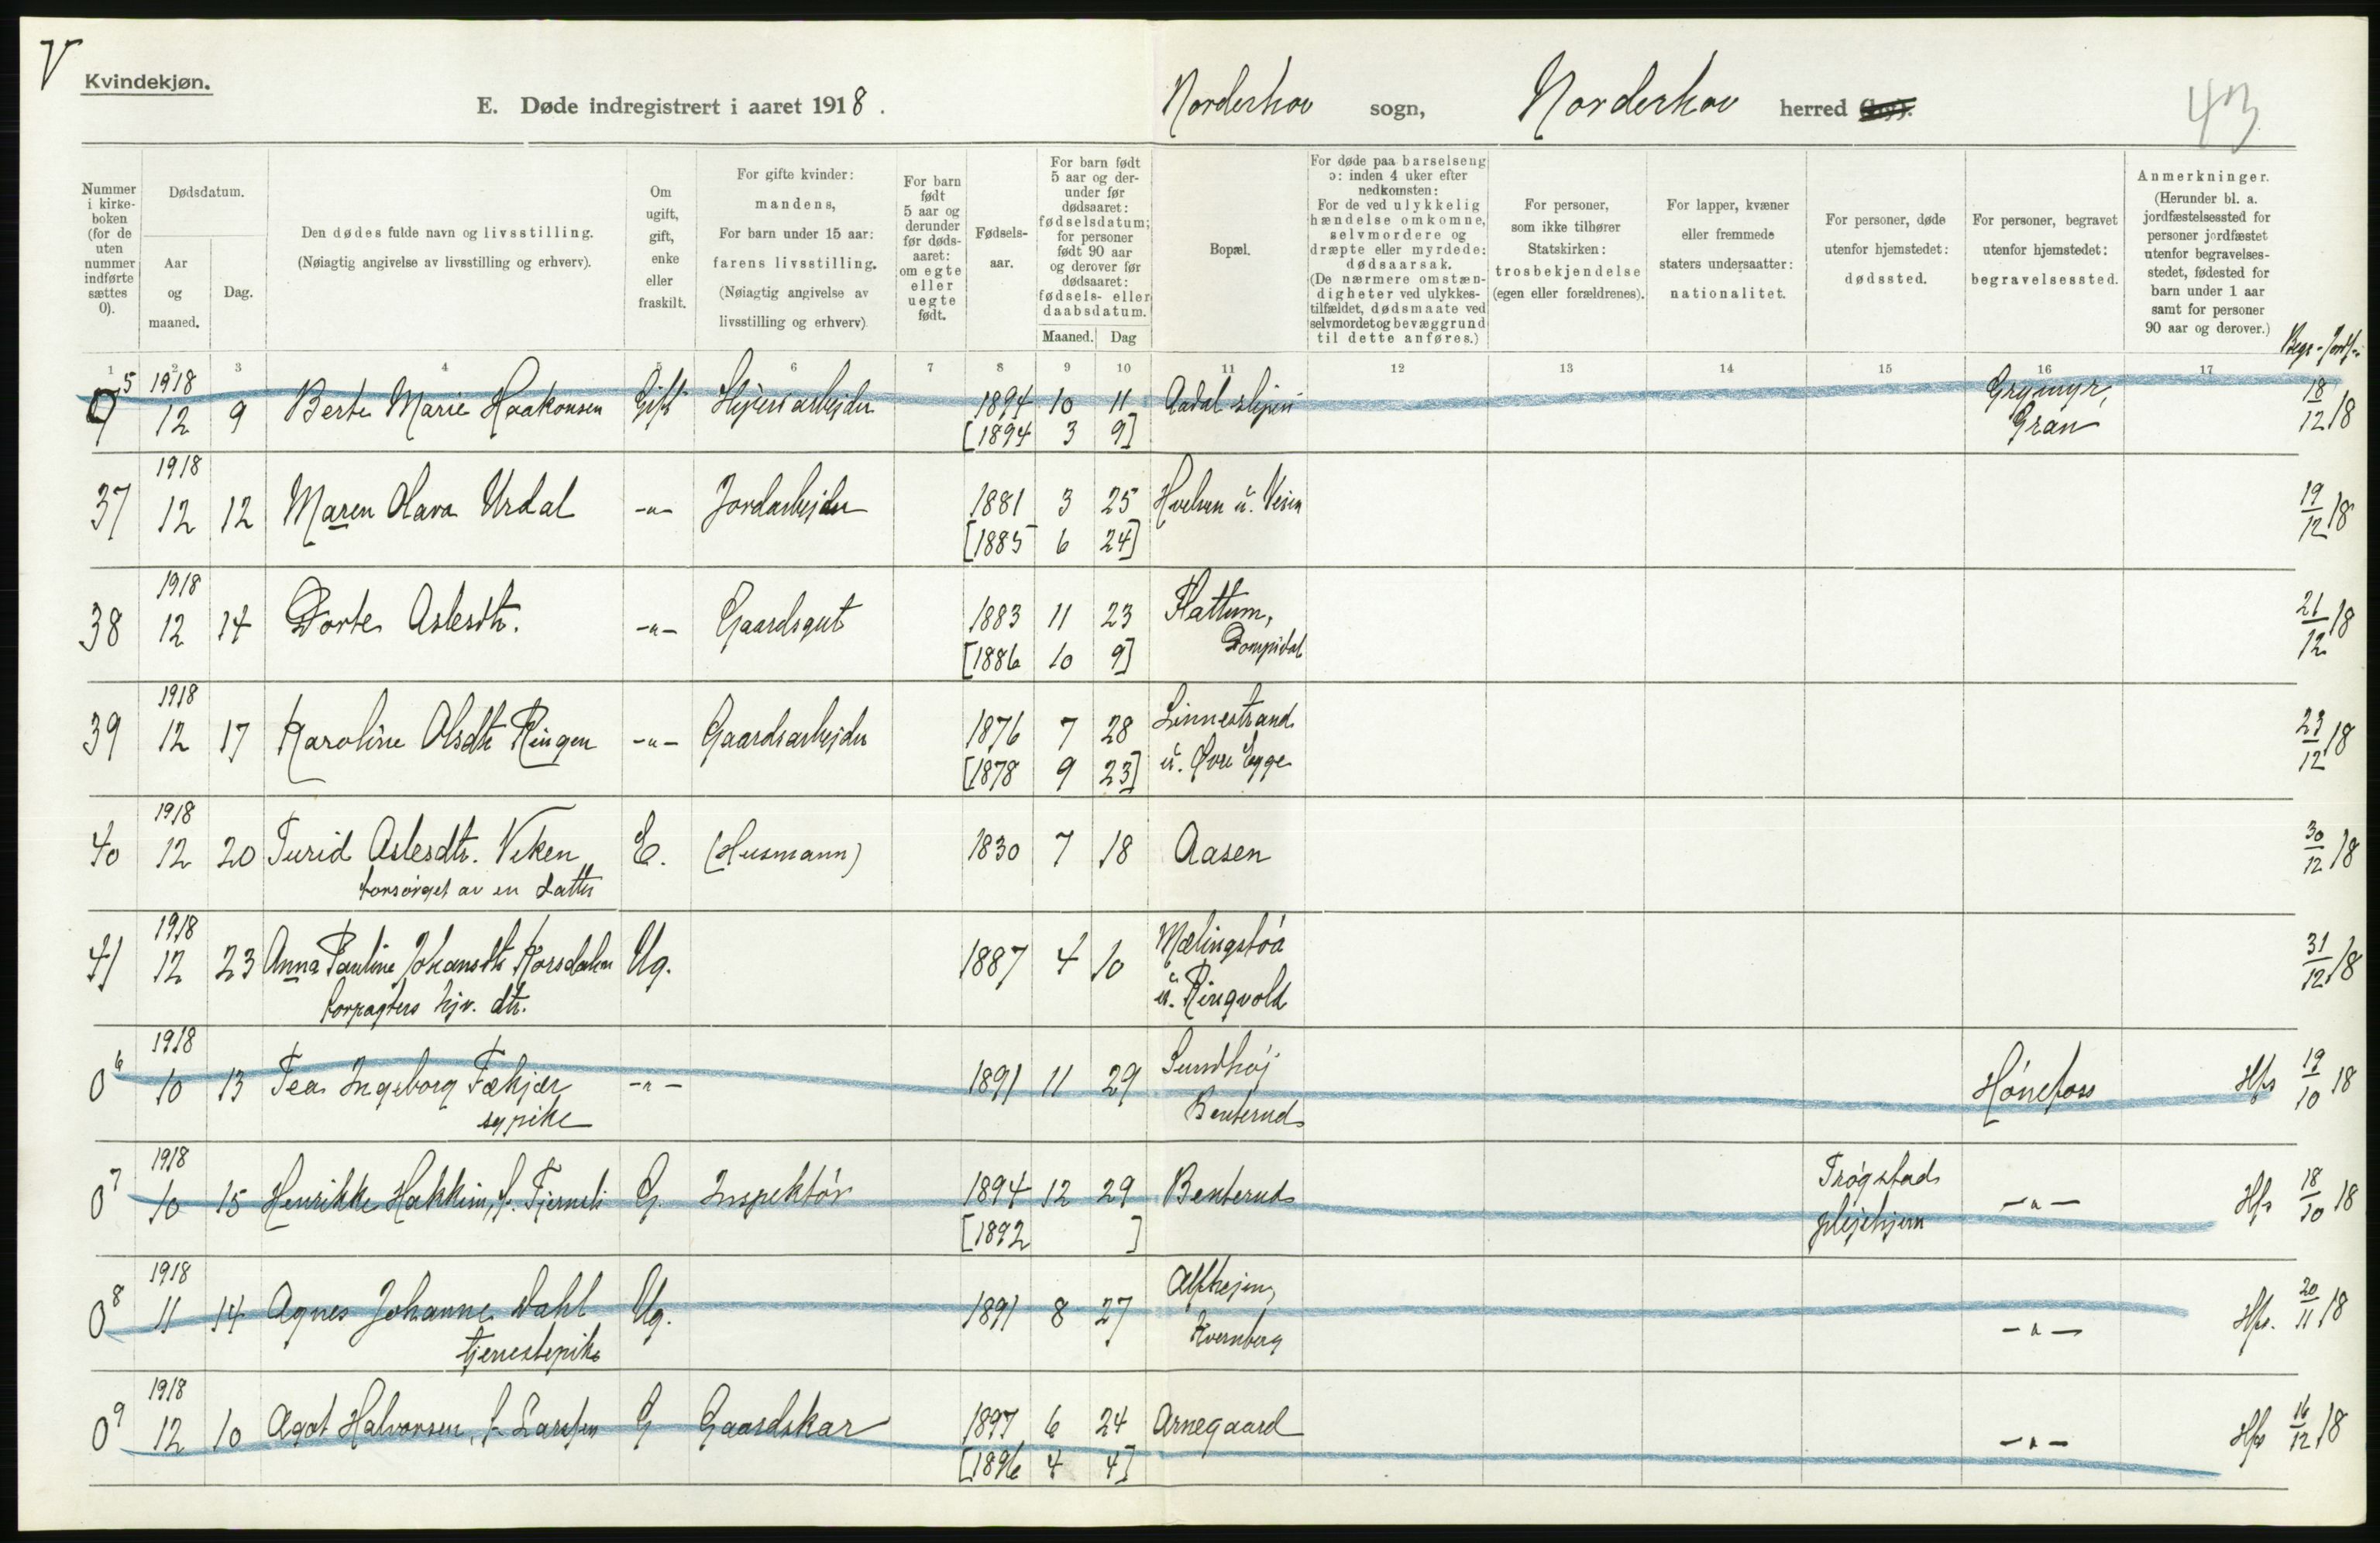 V
Kvindekjøn.
E. Døde indregistrert i aaret 1918.
Norderhov sogn, Norderhov herred
43
Nummer i kirke-boken (for de uten nummer indførte sættes 0).
Dødsdatum.
Aar og maaned.
Dag.
Den dødes fulde navn og livsstilling.
(Nøiagtig angivelse av livsstilling og erhverv).
Om ugift, gift, enke eller fraskilt.
For gifte kvinder: mandens,
For barn under 15 aar: farens livsstilling.
(Nøiagtig angivelse av livsstilling og erhverv)
For barn født 5 aar og derunder før døds-aaret: om egte eller uegte født.
Fødsels-aar.
For barn født 5 aar og der-under før dødsaaret: fødselsdatum; for personer født 90 aar og derover før dødsaaret: fødsels- eller daabsdatum.
Maaned. Dag
Bopæl.
For døde paa barselseng ɔ: inden 4 uker efter nedkomsten:
For de ved ulykkelig hændelse omkomne, selvmordere og dræpte eller myrdede: dødsaarsak.
(De nærmere omstæn-digheter ved ulykkes-tilfældet, dødsmaate ved selvmordet og bevæggrund til dette anføres.)
For personer, som ikke tilhører Statskirken: trosbekjendelse (egen eller forældrenes).
For lapper, kvæner eller fremmede staters undersaatter: nationalitet.
For personer, døde utenfor hjemstedet: dødssted.
For personer, begravet utenfor hjemstedet: begravelsessted.
Anmerkninger.
(Herunder bl. a. jordfæstelsessted for personer jordfæstet utenfor begravelses-stedet, fødested for barn under 1 aar samt for personer 90 aar og derover.)
1 2 3 4 5 6 7 8 9 10 11 12 13 14 15 16 17
0 5 1918 12 9 Berte Marie Haakonsen Gift 1894 10 11 Aadal Gran 18/12 18
[1894 3 9]
37 1918 12 12 Maren Olava Urdal -"- Jordarbejder 1881 3 25 u. Veien 19/12 18
[1885 6 24]
38 1918 12 14 Dorte Aslesdtr. -"- Gaardsgut 1883 11 23 Hattum, 21/12 18
[1886 10 9]
39 1918 12 17 Karoline Olsdtr Ringen -"- Gaardsarbejder 1876 7 28 Linnestrand 23/12 18
[1878 9 23] u. Øvre Egge
40 1918 12 20 Turid Aslesdtr. Viken E. (Husmann) 1830 7 18 Aasen 30/12 18
forsørget av en datter
41 1918 12 23 Anna Pauline Johansdtr Korsdalen Ug. 1887 4 10 31/12 18
forpagters hjv. dtr. u. Ringvold
0 6 1918 10 13 Tea Ingeborg Fækjær -"- 1891 11 29 Sundhøj Hønefoss Hfs 19/10 18
sypike Benterud
0 7 1918 10 15 Henrikke Hakkim, f. G. Inspektør 1894 12 29 Benterud Trøgstad plejehjem -"- Hfs 18/10 18
[1892 ]
0 8 1918 11 14 Agnes Johanne Dahl Ug. 1891 8 27 Alfhejm, -"- Hfs. 20/11 18
tjenestepike Kvernberg
0 9 1918 12 10 Agot Halvorsen, f. Larssen G Gaardskar 1897 6 24 Arnegaard -"- Hfs 16/12 18
[1896 4 4]